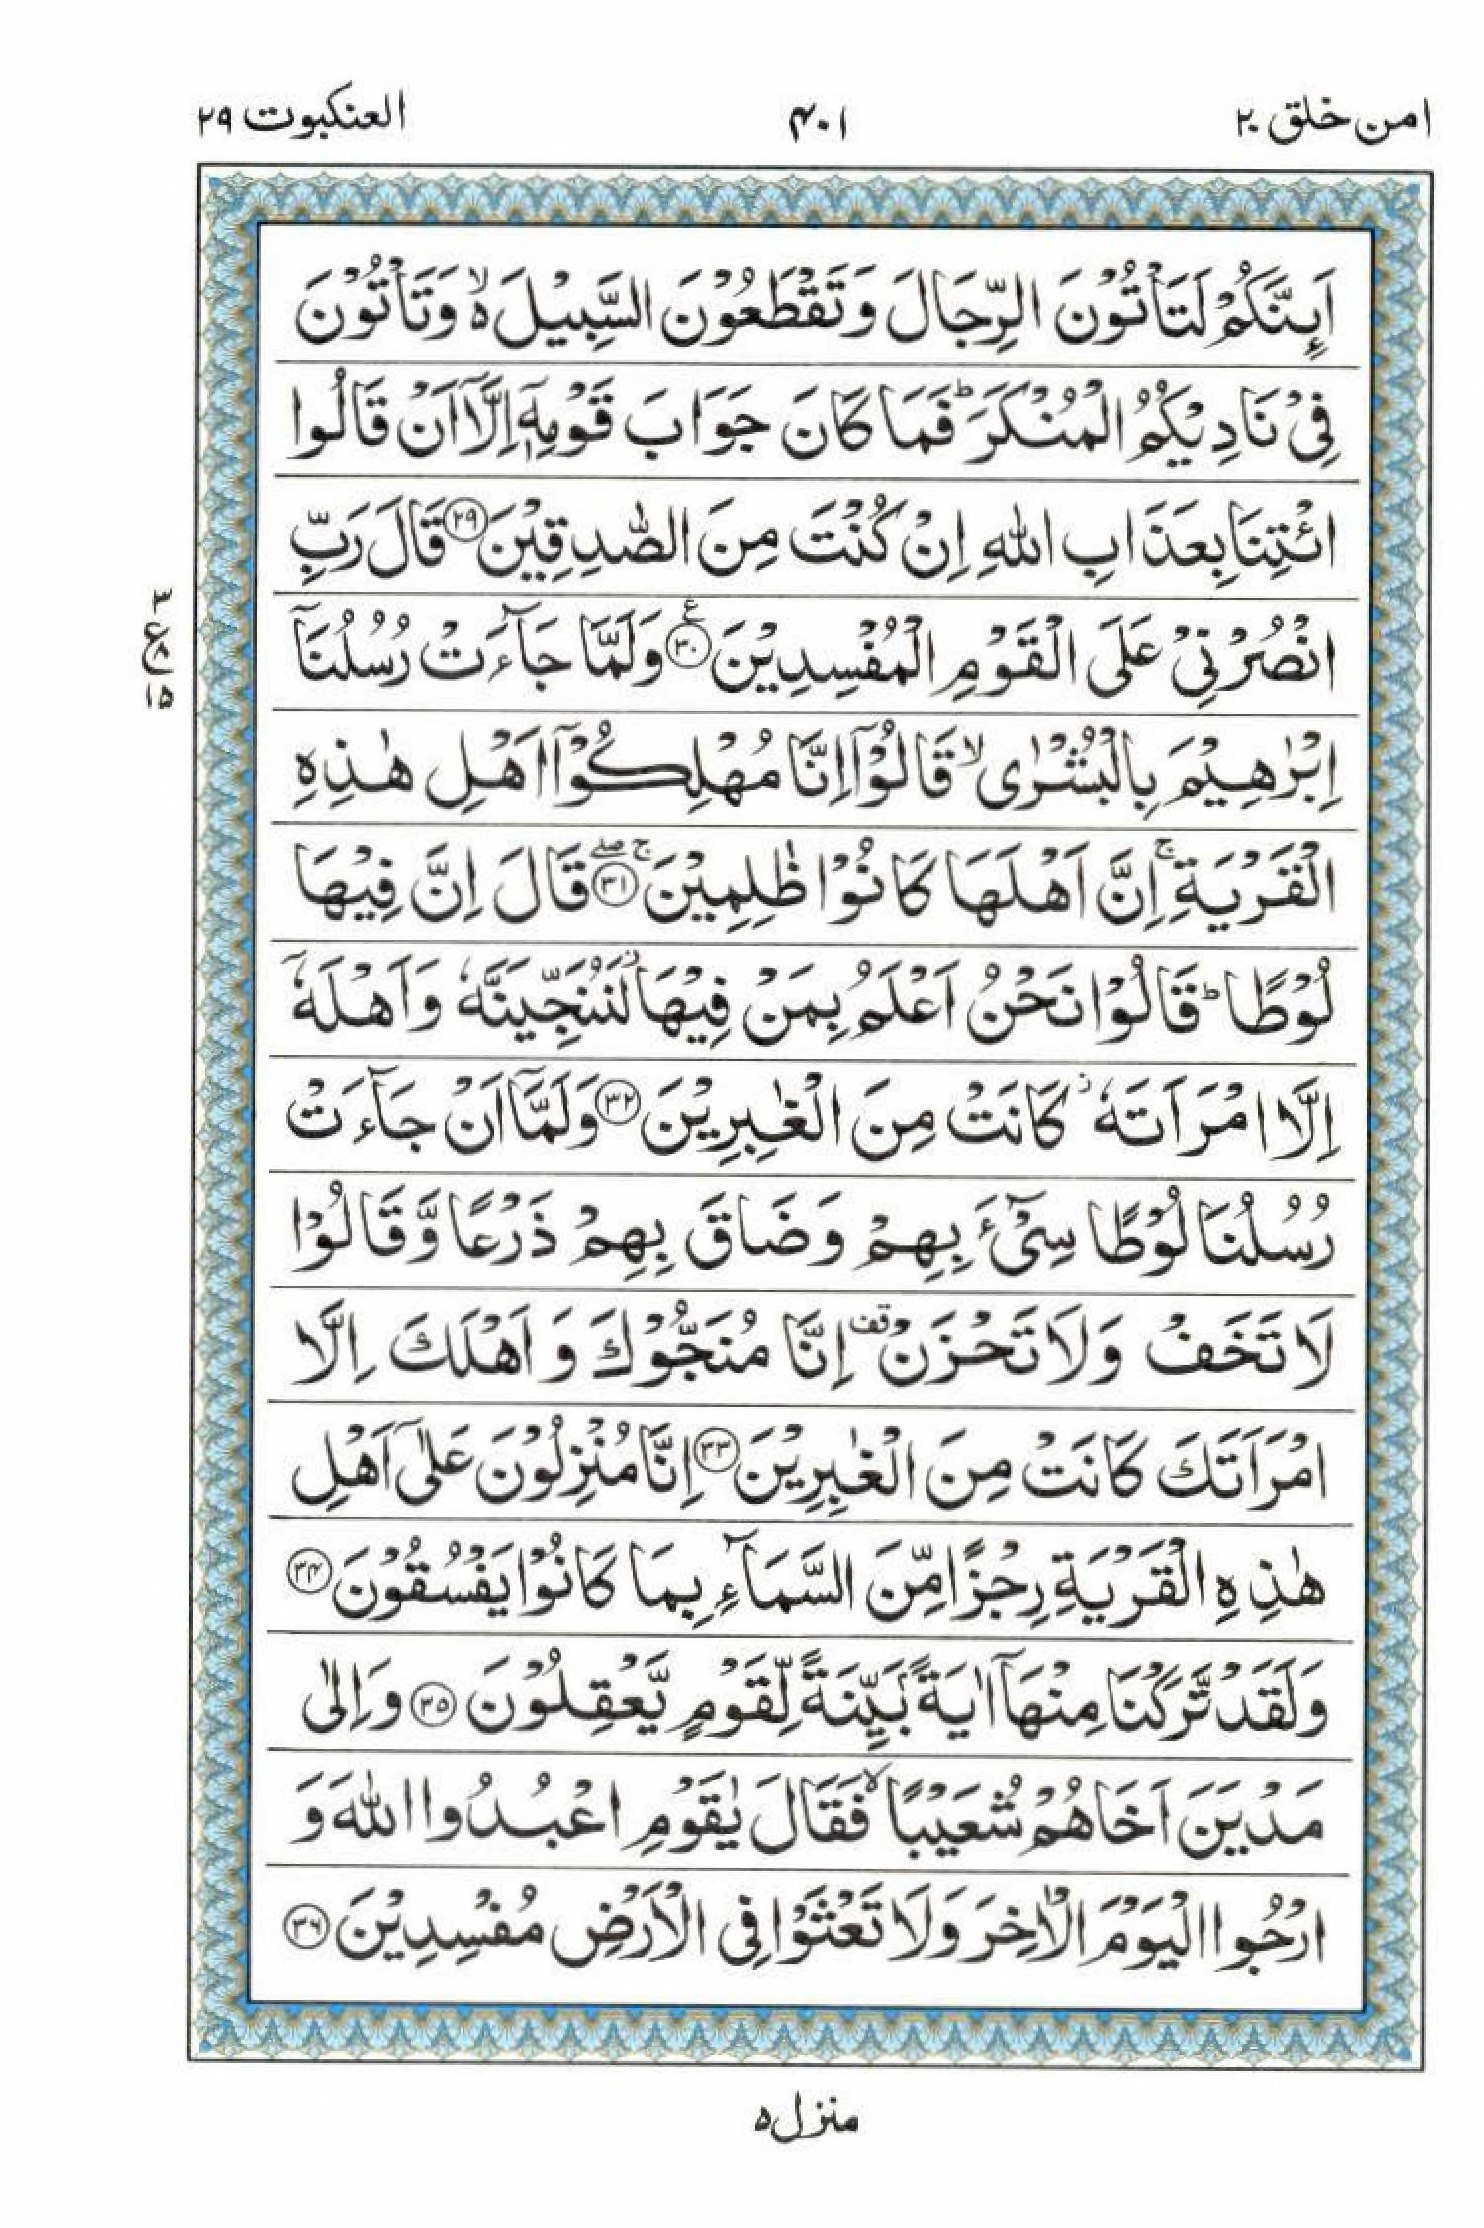 امن خلق ٢٠
٤٠١
العنكبوت ٢٩
اَئِنَّكُمْ لَتَاْتُوْنَ الرِّجَالَ وَتَقْطَعُوْنَ السَّبِيْلَ ۙ۬ وَتَاْتُوْنَ
فِيْ نَادِيْكُمُ الْمُنْكَرَ ؕ فَمَا كَانَ جَوَابَ قَوْمِهٖۤ اِلَّاۤ اَنْ قَالُوا
ائْتِنَا بِعَذَابِ اللّٰهِ اِنْ كُنْتَ مِنَ الصّٰدِقِيْنَ ﴿٢٩﴾ قَالَ رَبِّ
انْصُرْنِيْ عَلَى الْقَوْمِ الْمُفْسِدِيْنَ ﴿٣٠﴾ ع وَلَمَّا جَآءَتْ رُسُلُنَاۤ
٣
ع ٨
١٥
اِبْرٰهِيْمَ بِالْبُشْرٰى ۙ قَالُوْۤا اِنَّا مُهْلِكُوْۤا اَهْلِ هٰذِهِ
الْقَرْيَةِ ۚ اِنَّ اَهْلَهَا كَانُوْا ظٰلِمِيْنَ ۚۖ ﴿٣١﴾ قَالَ اِنَّ فِيْهَا
لُوْطًا ؕ قَالُوْا نَحْنُ اَعْلَمُ بِمَنْ فِيْهَا ؗ لَنُنَجِّيَنَّهٗ وَاَهْلَهٗۤ
اِلَّا امْرَاَتَهٗ ؗ كَانَتْ مِنَ الْغٰبِرِيْنَ ﴿٣٢﴾ وَلَمَّاۤ اَنْ جَآءَتْ
رُسُلُنَا لُوْطًا سِيْٓءَ بِهِمْ وَضَاقَ بِهِمْ ذَرْعًا وَّقَالُوْا
لَا تَخَفْ وَلَا تَحْزَنْ قف اِنَّا مُنَجُّوْكَ وَاَهْلَكَ اِلَّا
امْرَاَتَكَ كَانَتْ مِنَ الْغٰبِرِيْنَ ﴿٣٣﴾ اِنَّا مُنْزِلُوْنَ عَلٰۤى اَهْلِ
هٰذِهِ الْقَرْيَةِ رِجْزًا مِّنَ السَّمَآءِ بِمَا كَانُوْا يَفْسُقُوْنَ ﴿٣٤﴾
وَلَقَدْ تَّرَكْنَا مِنْهَاۤ اٰيَةًۢ بَيِّنَةً لِّقَوْمٍ يَّعْقِلُوْنَ ﴿٣٥﴾ وَاِلٰى
مَدْيَنَ اَخَاهُمْ شُعَيْبًا ۙ فَقَالَ يٰقَوْمِ اعْبُدُوا اللّٰهَ وَ
ارْجُوا الْيَوْمَ الْاٰخِرَ وَلَا تَعْثَوْا فِي الْاَرْضِ مُفْسِدِيْنَ ﴿٣٦﴾
منزل ٥